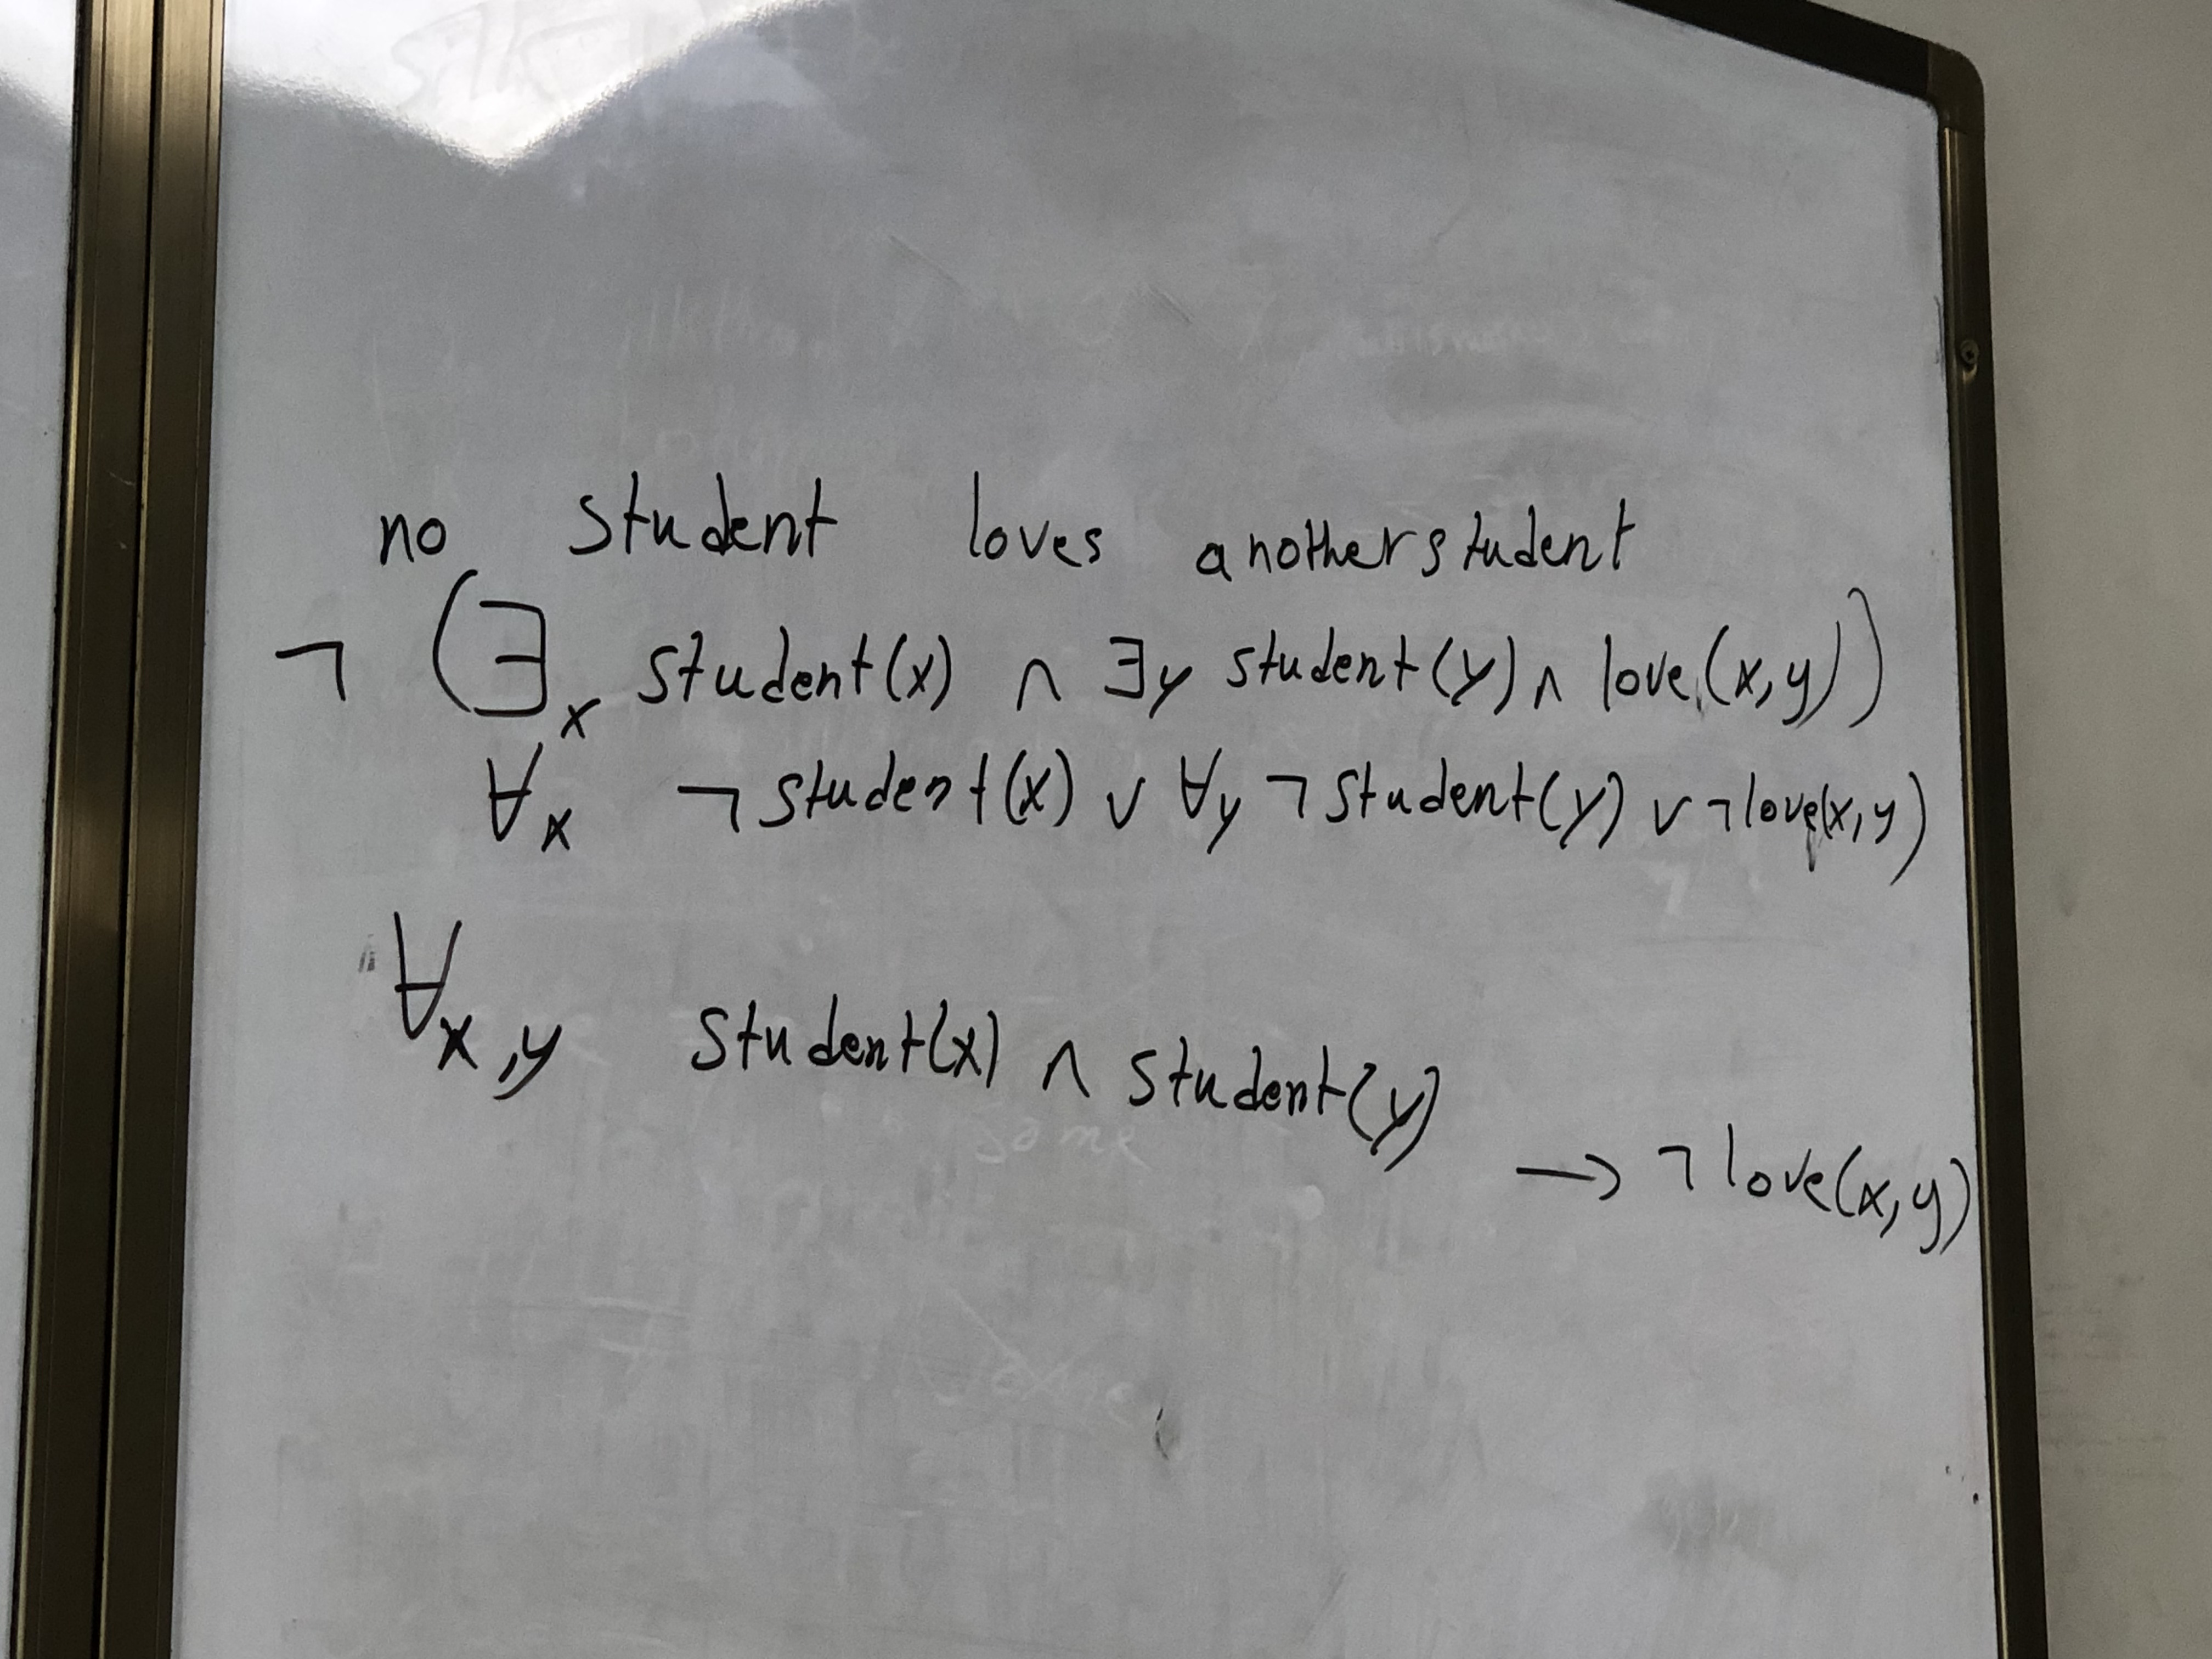 no student loves anotherstudent
¬ (∃x student(x) ∧ ∃y student(y) ∧ love(x,y))
∀x ¬student(x) ∨ ∀y ¬student(y) ∨ ¬love(x,y)
∀x,y student(x) ∧ student(y)
→ ¬love(x,y)
some